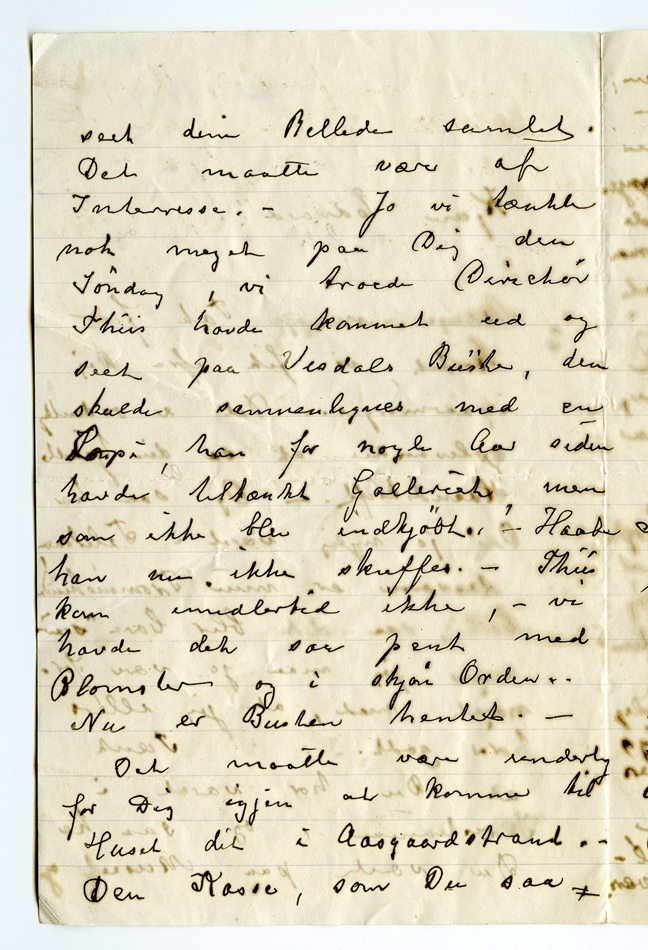 seet dine Billeder samlet.
Det maatte være af
Interresse. – Jo vi tænkte
nok meget paa Dig den
Söndag, vi troede Direktör
Thiis havde kommet ud og
seet paa Visdals Büste, den
skulde sammenlignes med en
han for nogle Aar siden
havde tiltænkt Galleriet, men
som ikke blev indkjöbt. – Haabe
han nu ikke skuffes. – Thiis
kom imidlertid ikke, – vi
havde det saa pent med
Blomster og i skjøn Orden..
Nu er Busten hentet. –
Det maatte være underlig
for Dig igjen at komme til
Huset dit i Aasgaardstrand. –
Den Kasse, som Du saa